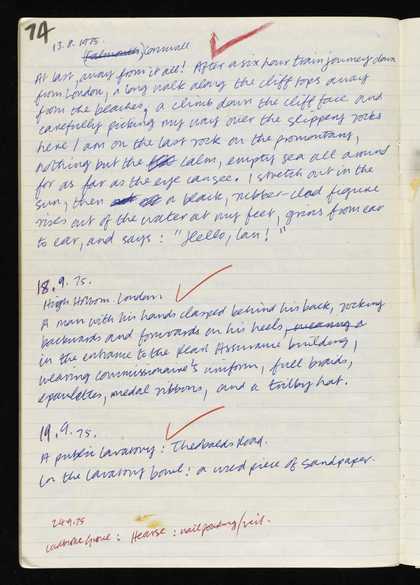 74
13.8.1975.
(Falmouth) Cornwall
At last, away from it all! After a six hour train journey down
from London, a long walk along the cliff tops away
from the beaches, a climb down the cliff face and
carefully picking my way over the slippery rocks
here I am on the last rock on the promontory,
nothing but the calm, empty sea all around
for as far as the eye can see. I stretch out in the
sun, then a black, rubber-clad figure
rises out of the water at my feet, grins from ear
to ear, and says: "Hello, Ian!"
18.9.75.
High Holborn. London.
A man with his hands clasped behind his back, rocking
backwards and forwards on his heels, wearing a
in the entrance to the Pearl Assurance building,
wearing commissionaire's uniform, full braids,
epaulettes, medal ribbons, and a trilby hat.
19.9.75.
A public lavatory: Theobalds Road.
In the lavatory bowl: a used piece of sandpaper.
24.9.75
Ladbroke Grove: Hearse: